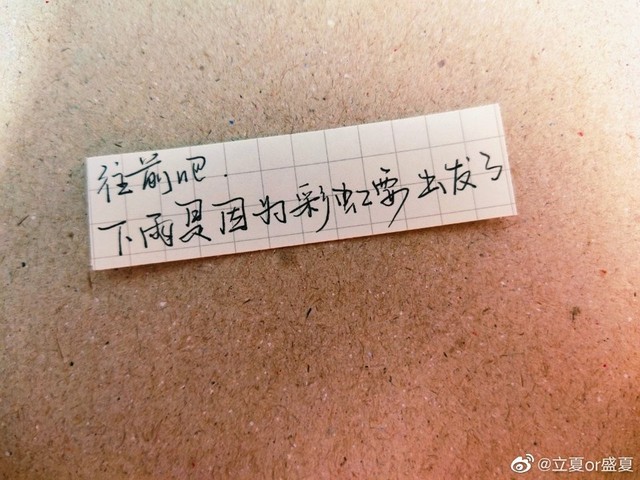 往前吧.
下雨是因为彩虹要出发了
@立夏or盛夏